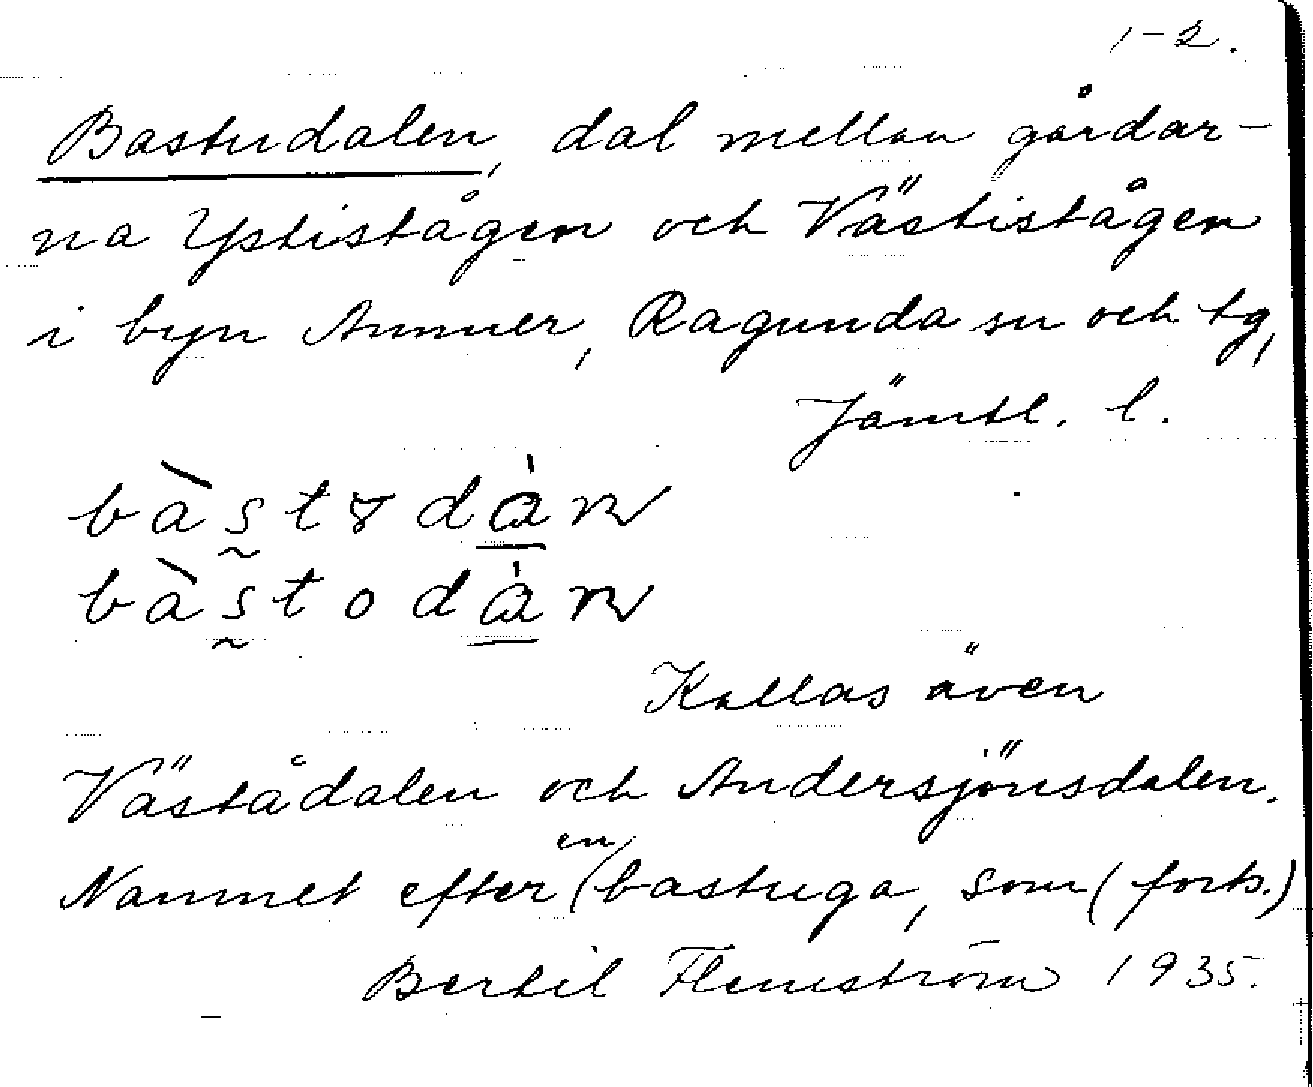 1-2.
Bastudalen, dal mellan gårdar-
na Ystistågen och Västistågen
i byn Ammer, Ragunda sn och tg,
Jämtl. l.
Kallas även
Västådalen och Andersjönsdalen.
Namnet efter en bastuga, som (forts.)
Bertil Flemström 1935.